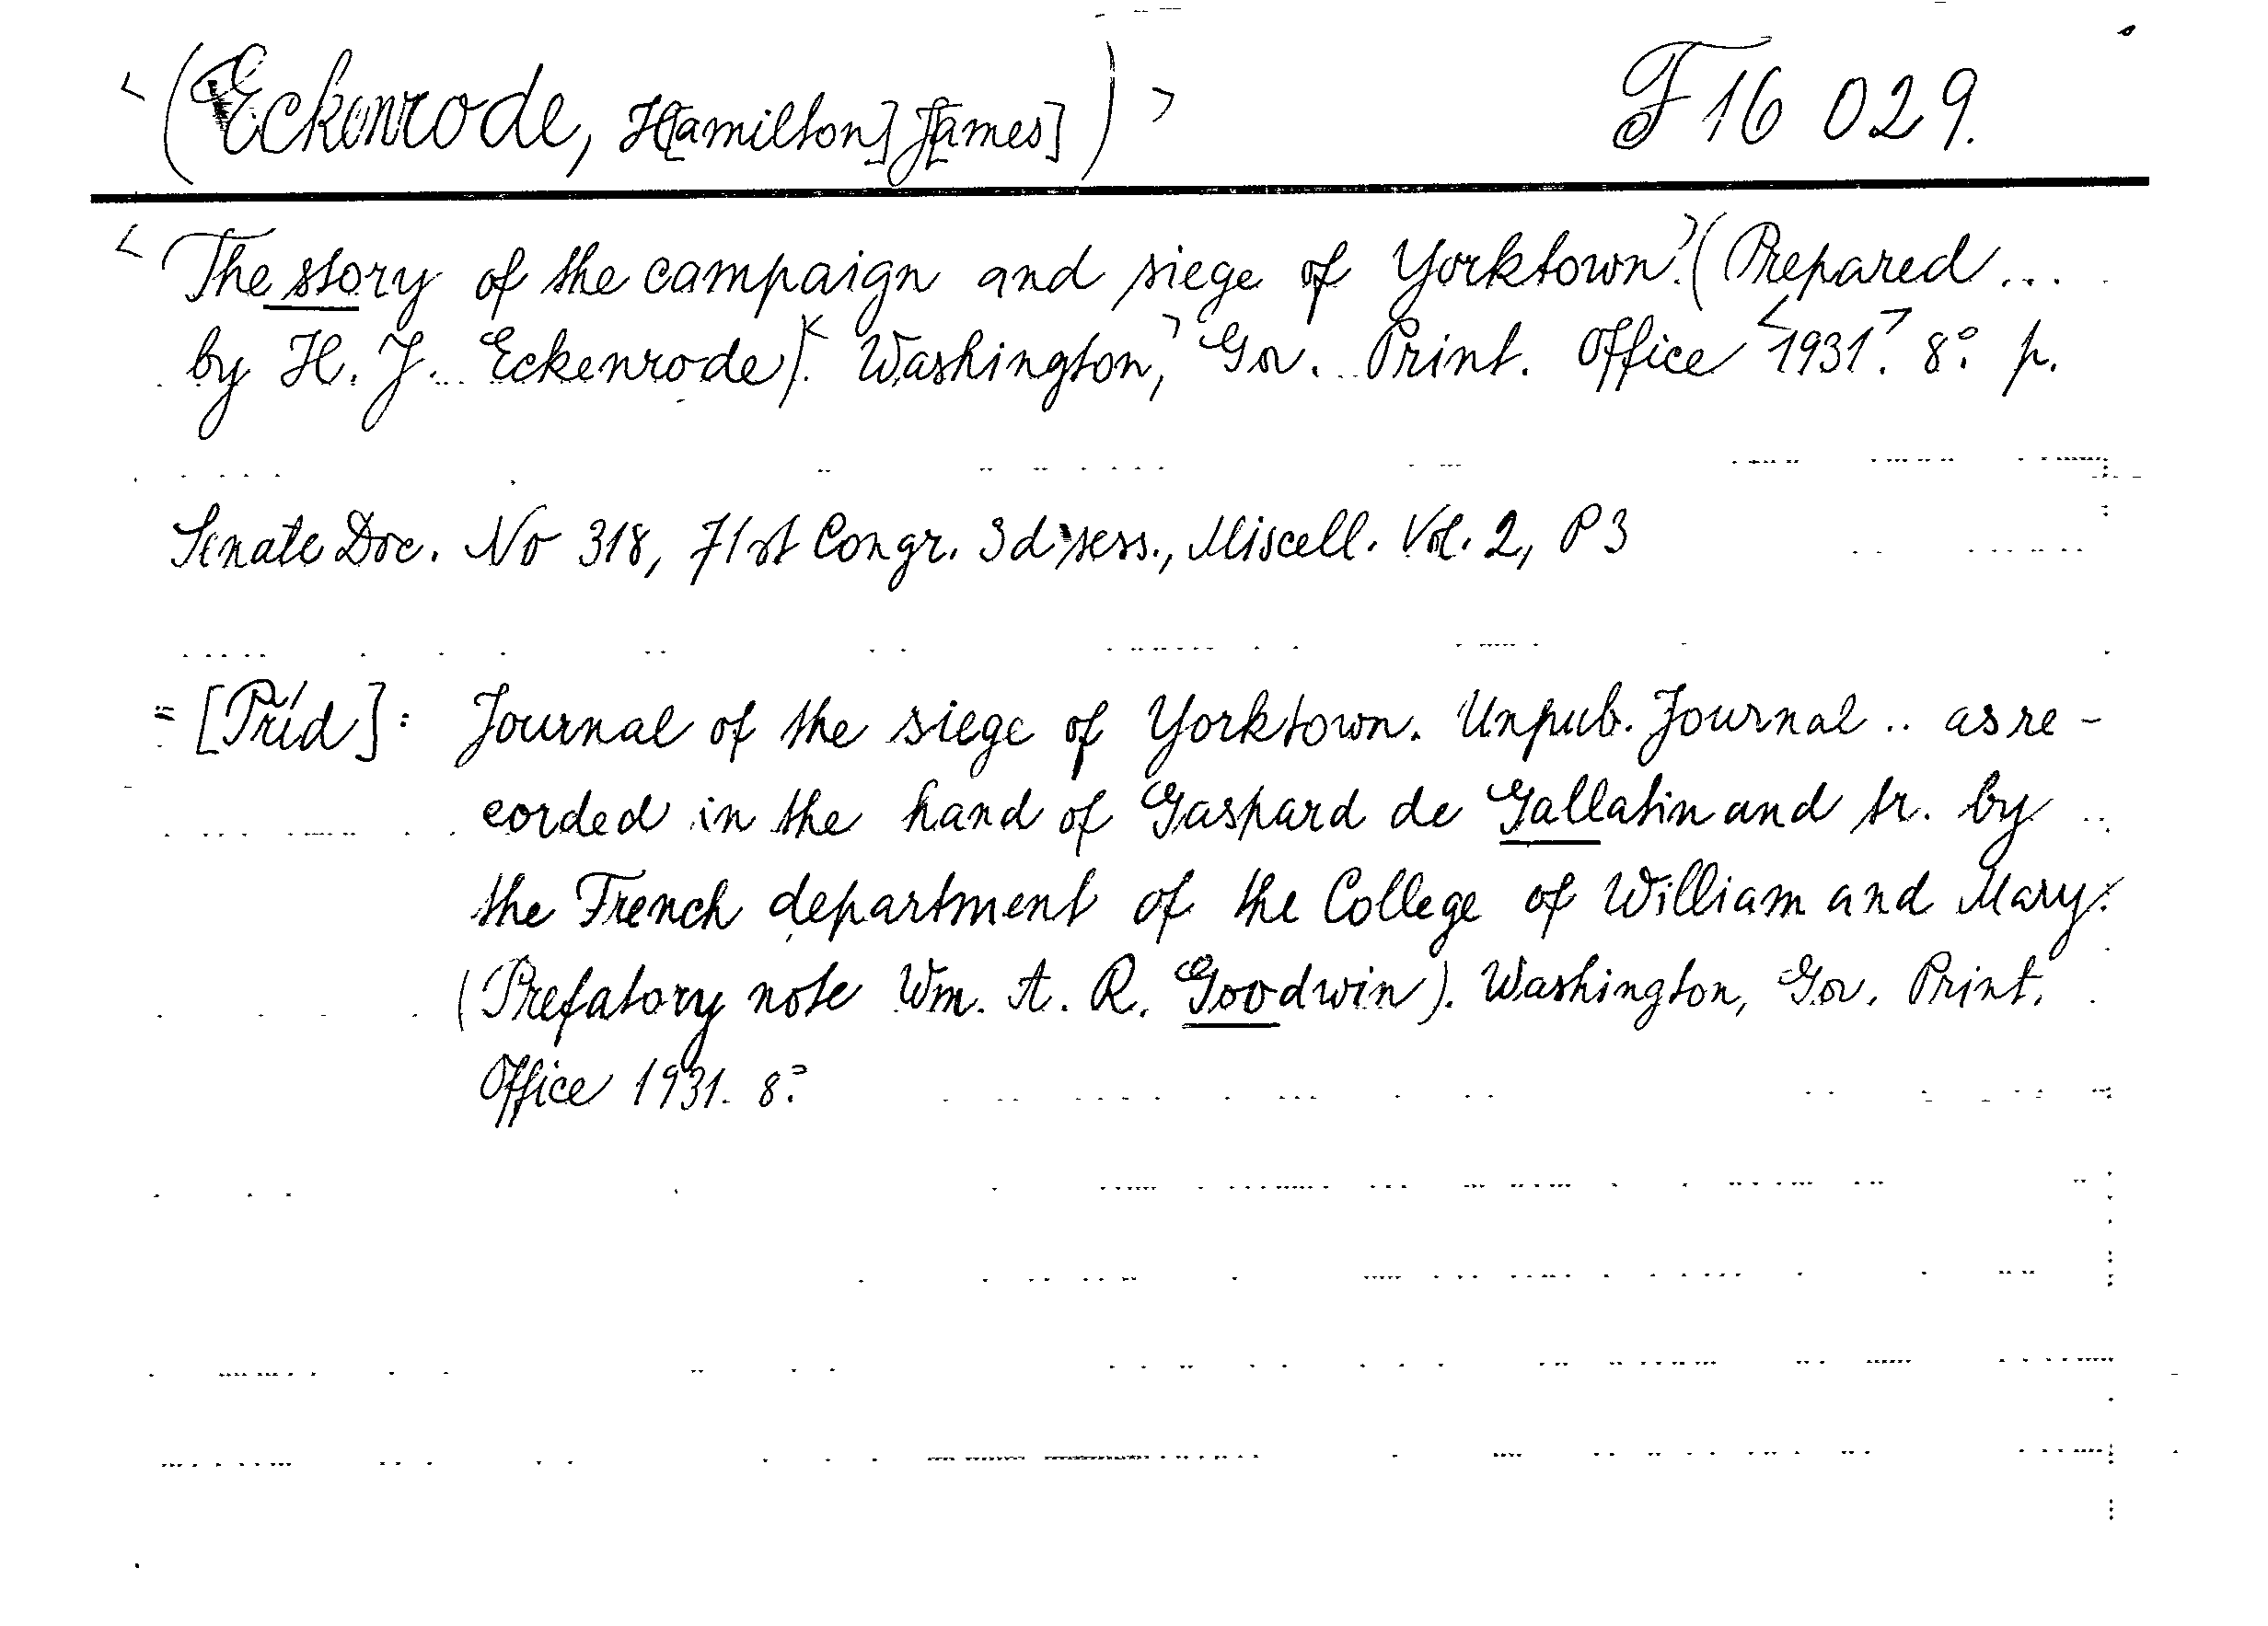 <(Eckenrode, H[amilton] J[ames])> F 16 029.
<The story of the campaign and siege of Yorktown.>(Prepared ...
by H. J. Eckenrode).< Washington,> Gov. Print. Office <1931.> 8°. p.
Senate Doc. No 318, 71st Congr. 3d sess., Miscell. Vol. 2, P 3
= [Příd]: Journal of the siege of Yorktown. Unpub. Journal .. as re-
corded in the hand of Gaspard de Gallatin and tr. by
the French department of the College of William and Mary.
(Prefatory note Wm. A. R. Goodwin). Washington, Gov. Print.
Office 1931. 8°.